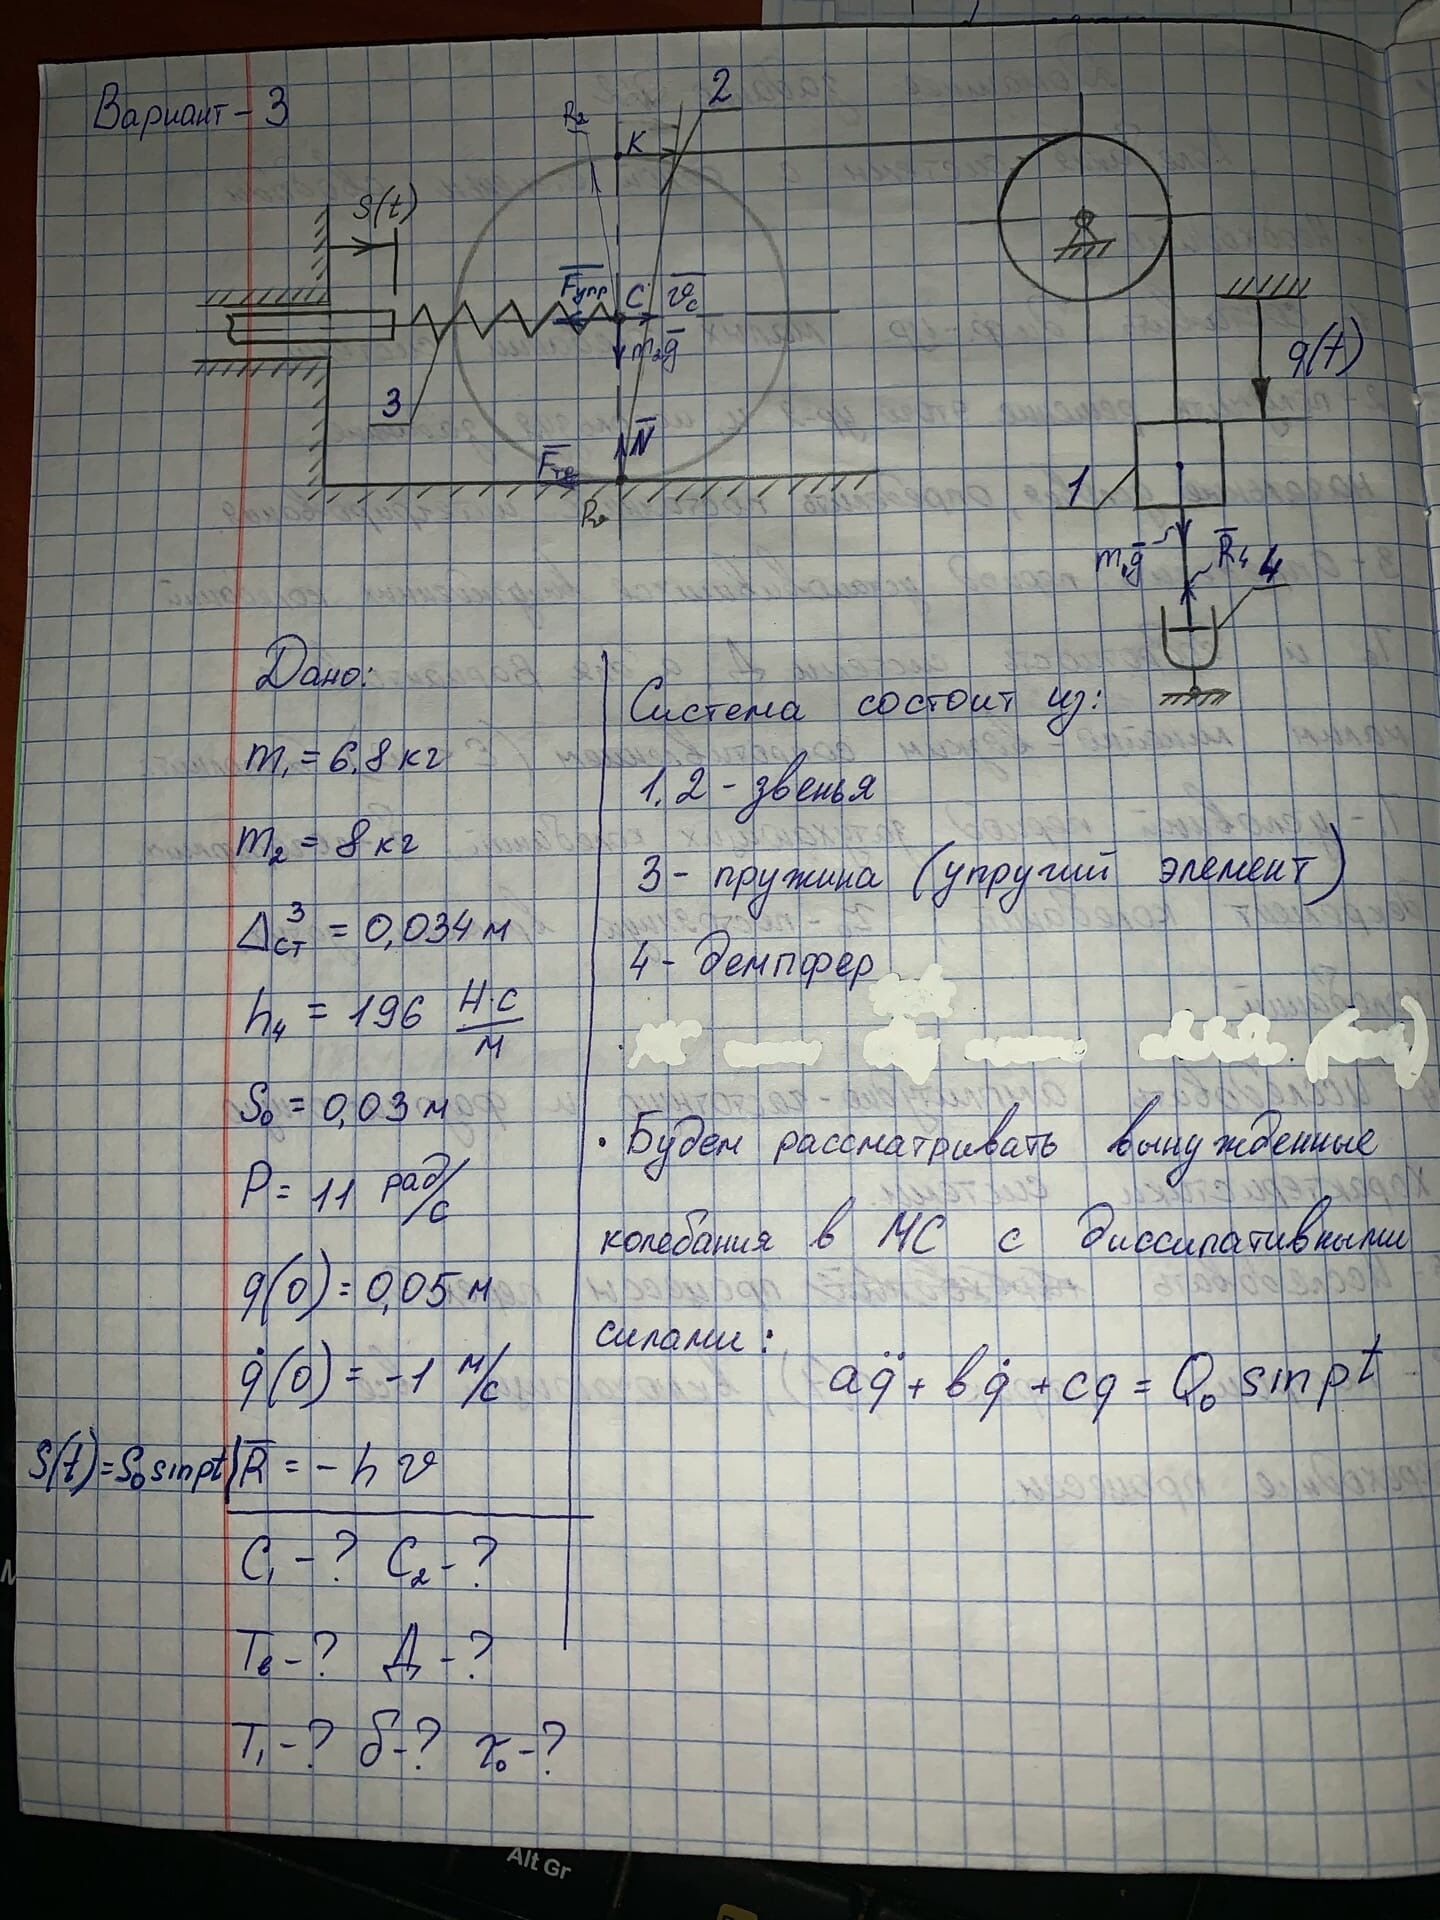 Вариант - 3
2
R₂
K
S(t)
F̅упр
C
v̅c
m₂g̅
3
N̅
F̅тр
P₂
q(t)
1
m₁g̅
R̅₄
4
Дано:
m₁ = 6,8 кг
m₂ = 8 кг
Δ³ст = 0,034 м
h₄ = 196 Н·с/м
S₀ = 0,03 м
P = 11 рад/с
q(0) = 0,05 м
q̇(0) = -1 м/с
S(t) = S₀ sin pt
R̅ = - h v
C₁ - ? C₂ - ?
Tв - ? Д - ?
T₁ - ? δ - ? τ₀ - ?
Система состоит из:
1, 2 - звенья
3 - пружина (упругий элемент)
4 - демпфер
· Будем рассматривать вынужденные
колебания в МС с диссипативными
силами:
aq̈ + bq̇ + cq = Q₀ sin pt
Alt Gr